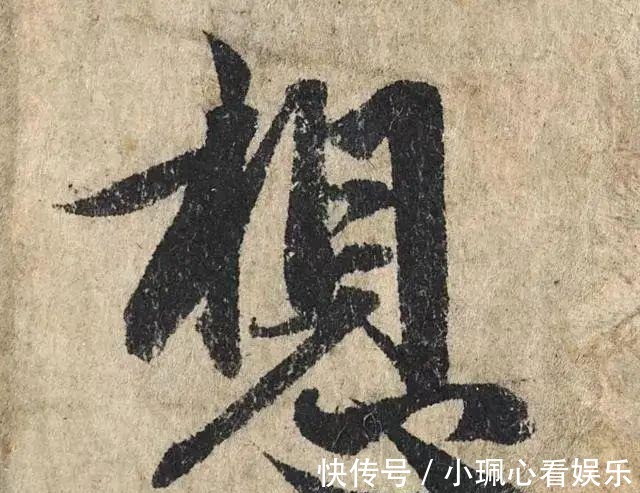 想
快传号/小珮心看娱乐